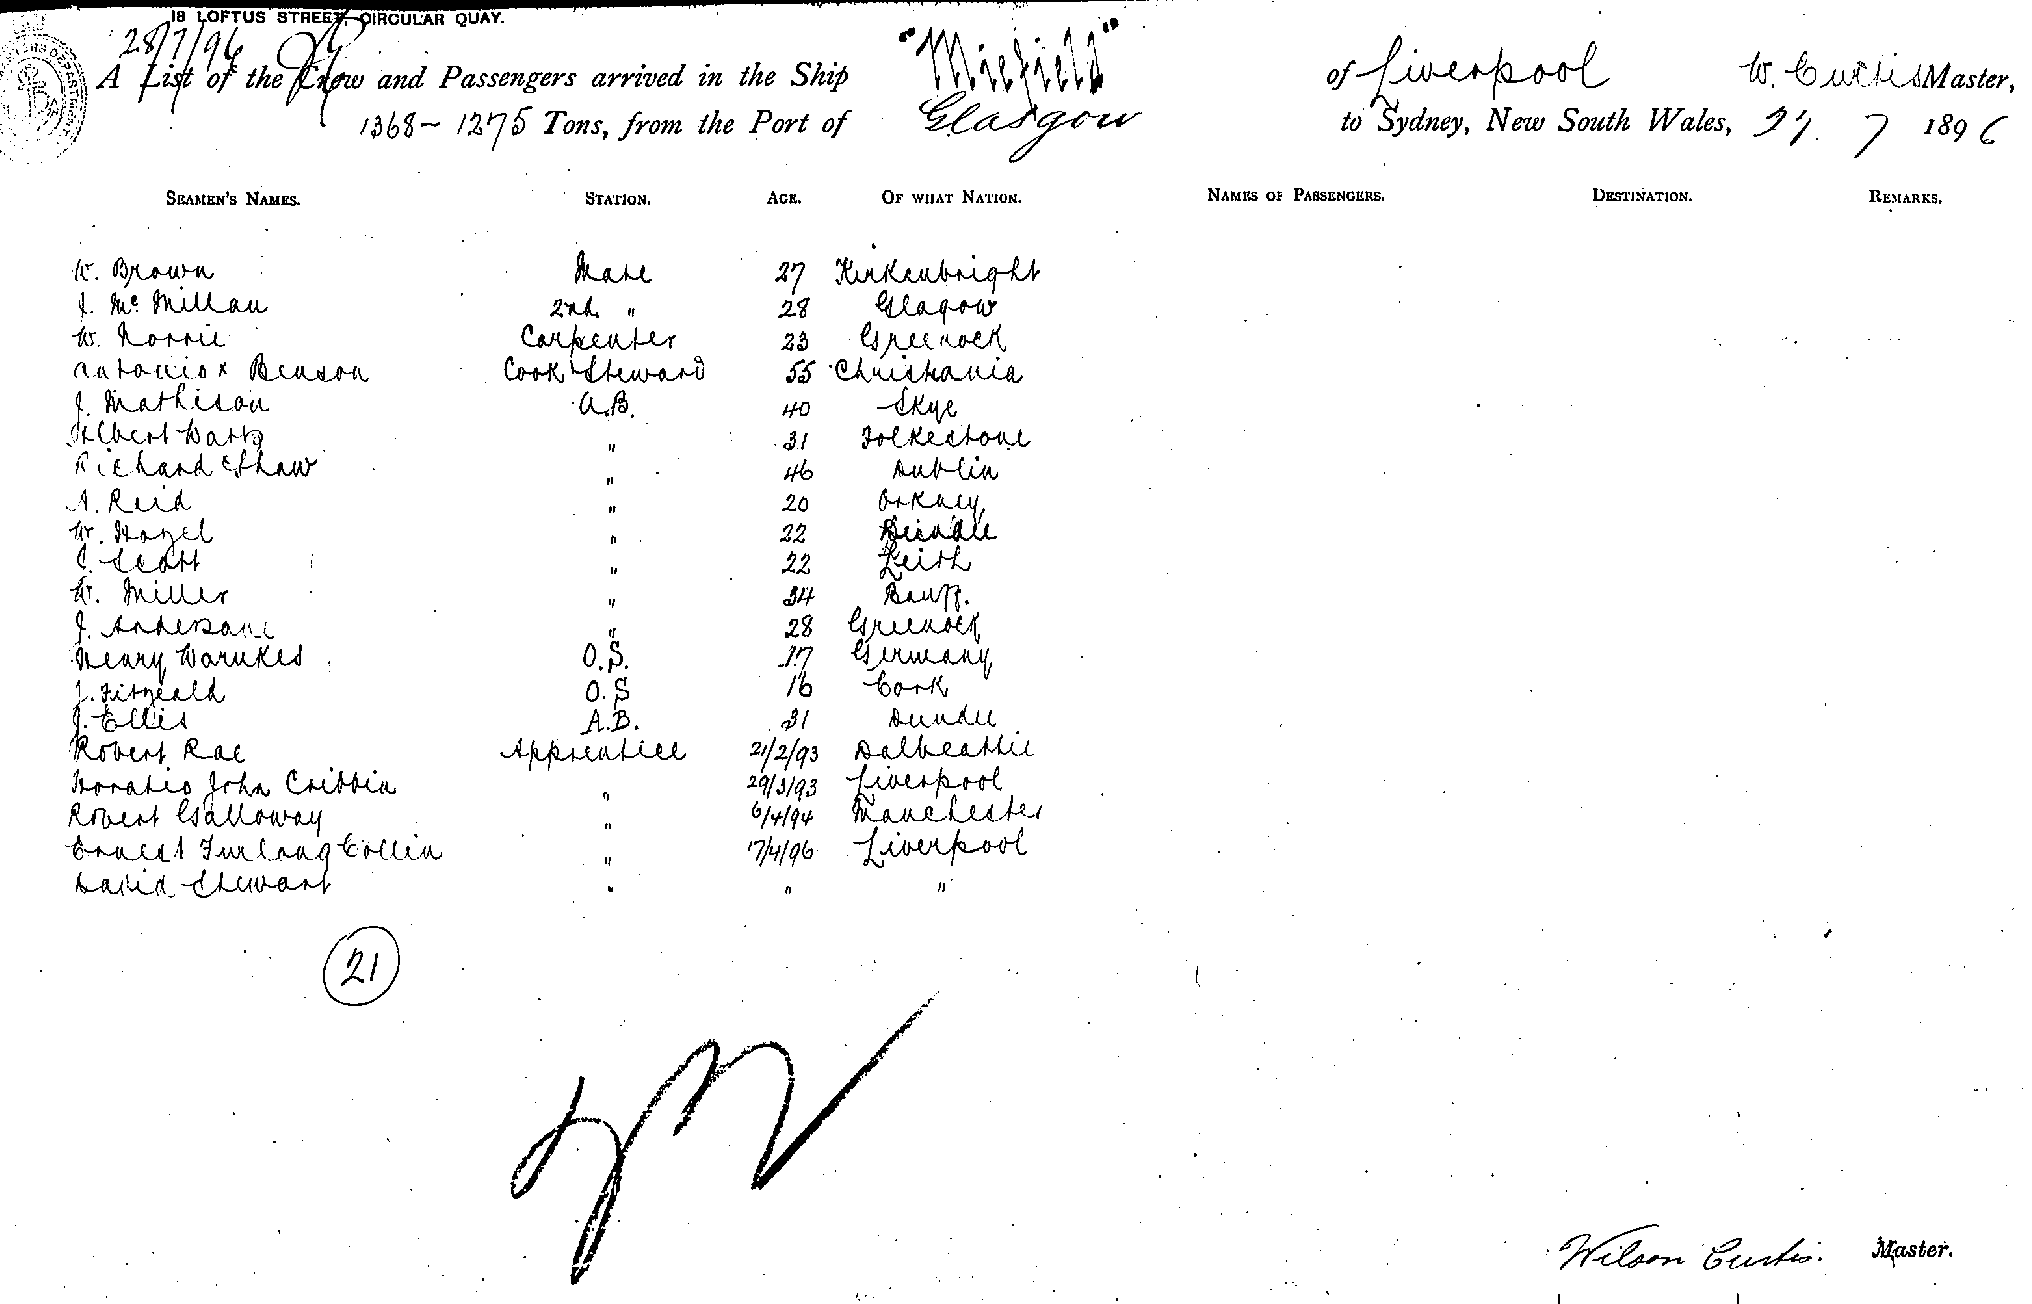 18 LOFTUS STREET, CIRCULAR QUAY.
28/7/96
A List of the Crew and Passengers arrived in the Ship "Mirfield" of Liverpool W. Curtis Master,
1368 - 1275 Tons, from the Port of Glasgow to Sydney, New South Wales, 27. 7 1896
SEAMEN'S NAMES. STATION. AGE. OF WHAT NATION. NAMES OF PASSENGERS. DESTINATION. REMARKS.
W. Brown Mate 27 Kirkenbright
J. McMillan 2nd " 28 Glagow
W. Norrie Carpenter 23 Greenock
Antonio x Benson Cook Steward 55 Christiania
J. Mathison A.B. 40 Skye
Albert Watts " 31 Folkestone
Richard Shaw " 46 Dublin
A. Reid " 20 Orkney
W. Hazel " 22 Dundee
C. Scott " 22 Leith
W. Miller " 34 Banff.
J. Anderson " 28 Greenock
Henry Warnkes O.S. 17 Germany
J. Fitzgeald O.S 16 Cork
J. Ellis A.B. 31 Dundee
Robert Rae Apprentice 21/2/93 Dalbeattie
Horatio John Cribbin " 29/3/93 Liverpool
Robert Galloway " 6/4/94 Manchester
Ernest Furlong Collin " 17/4/96 Liverpool
David Stewart " " "
21
Wilson Curtis. Master.